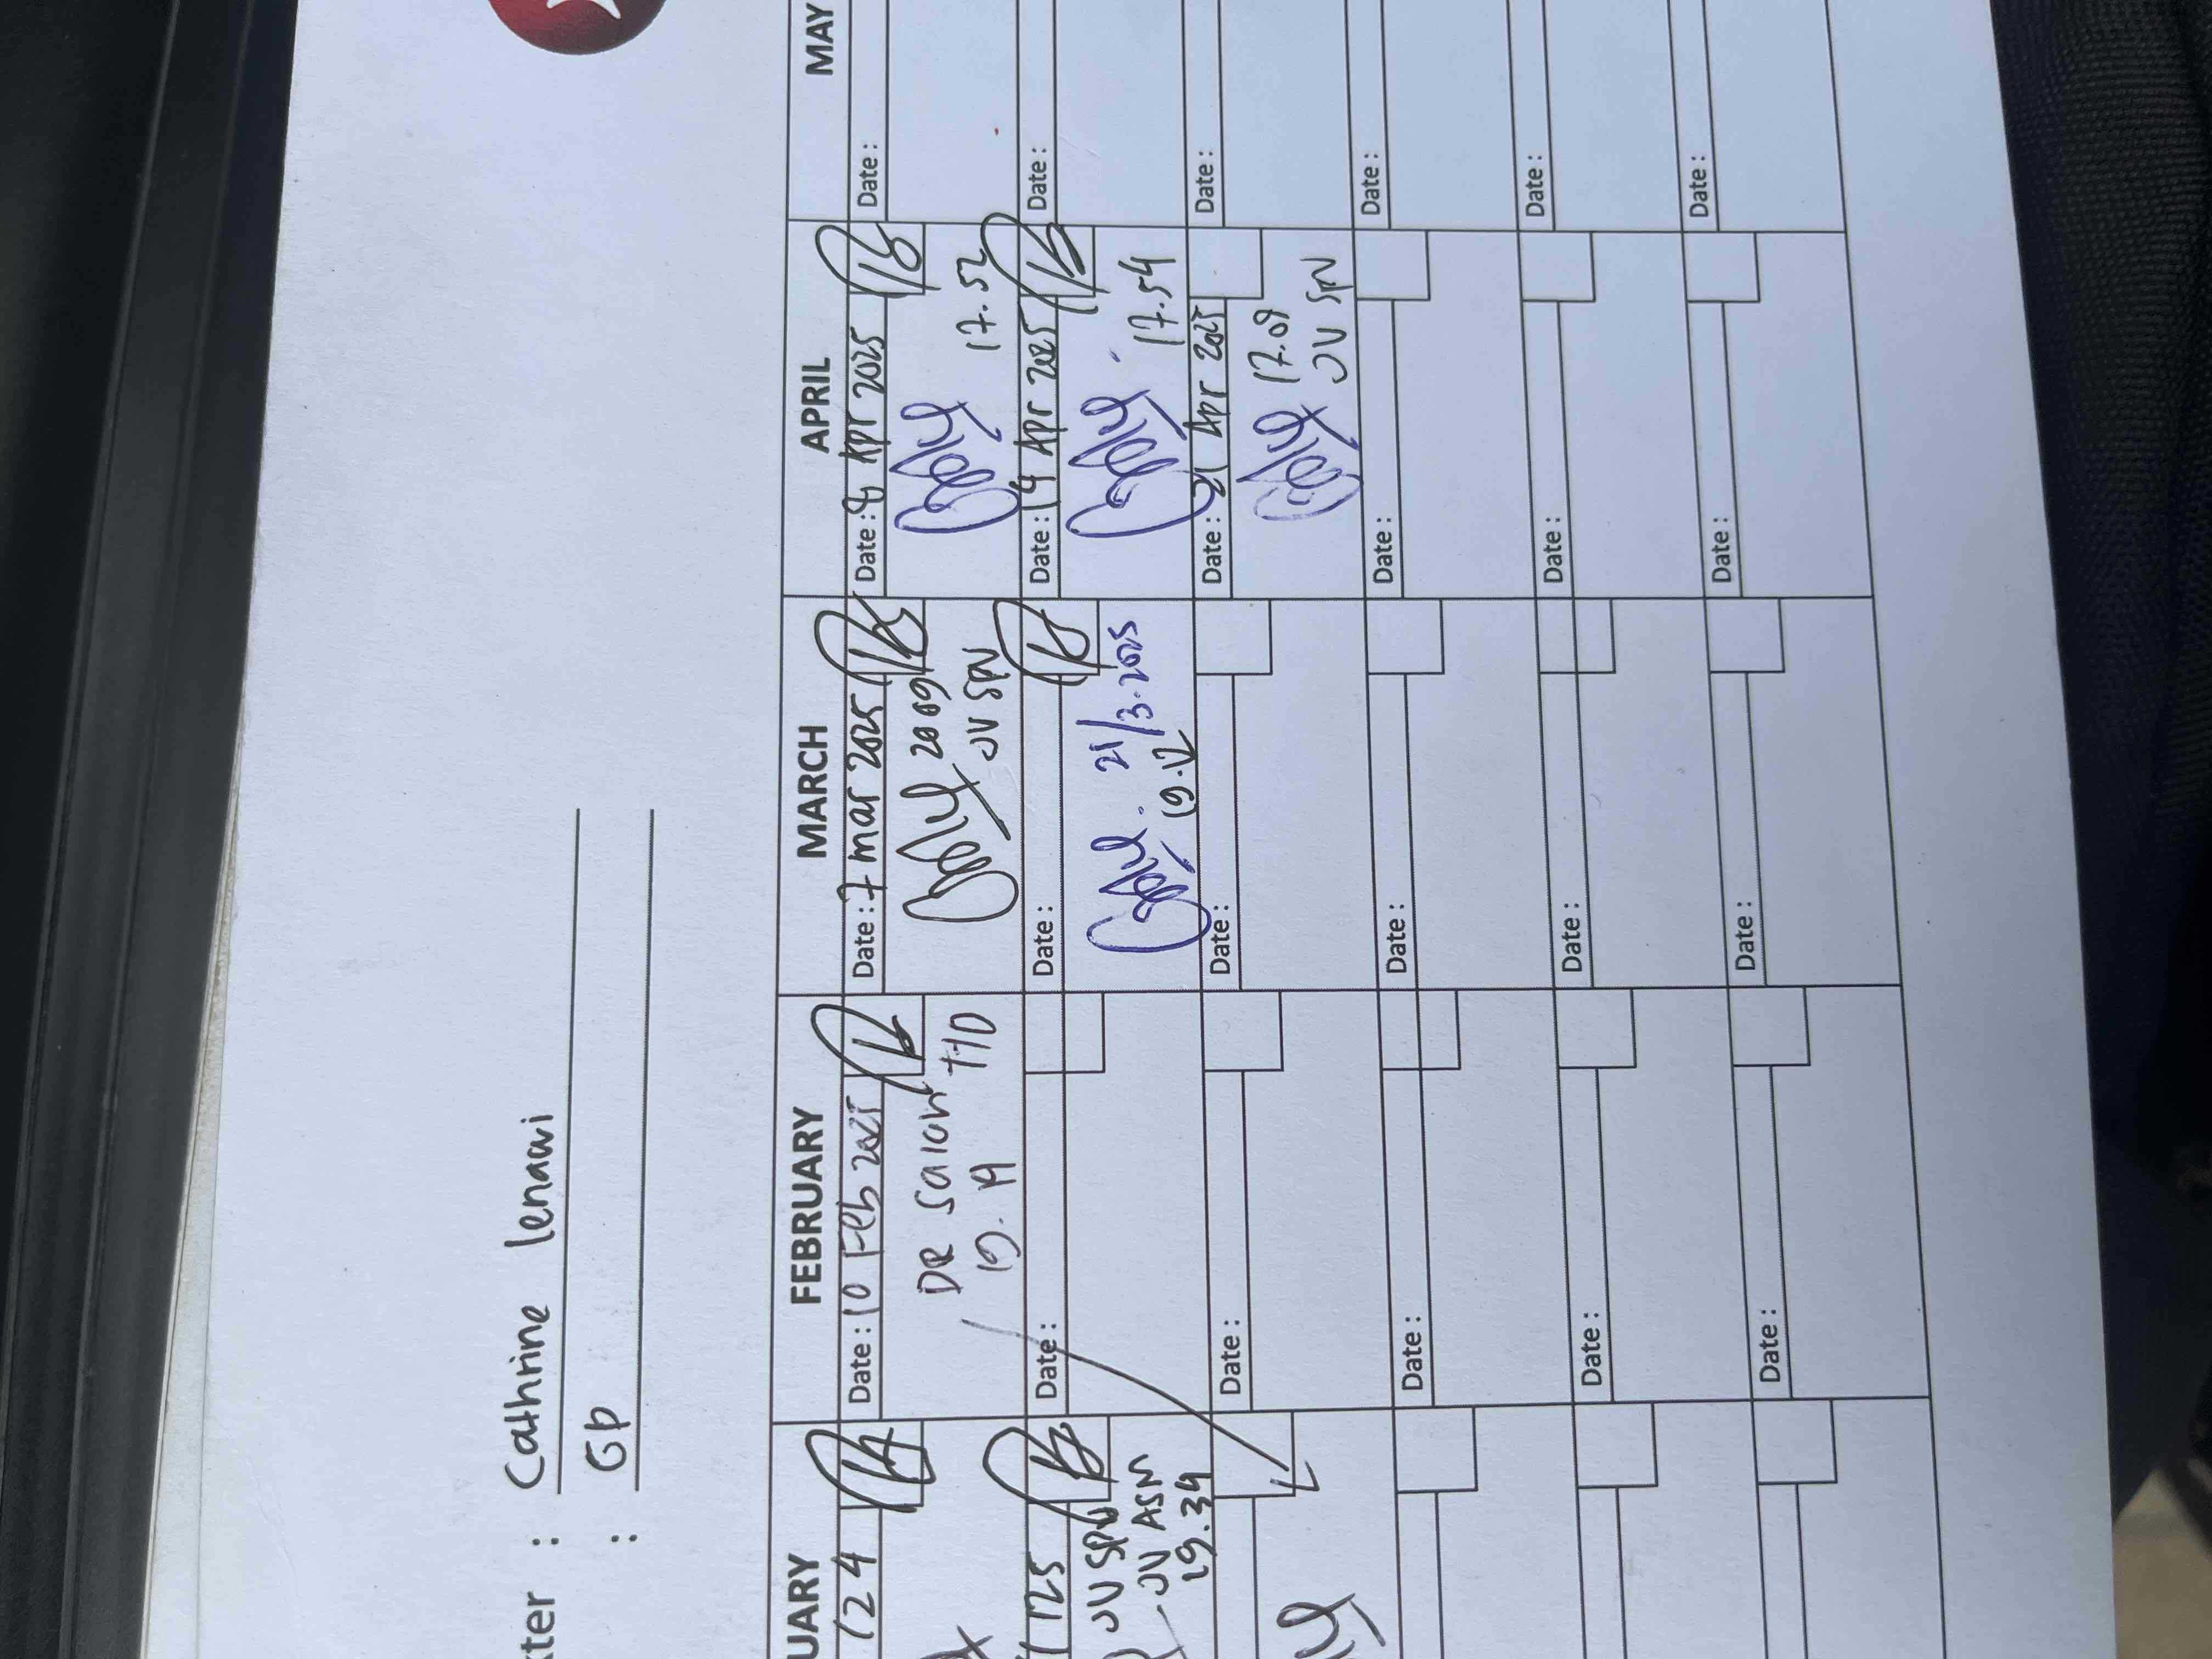 kter : Cathrine lenawi
: Gp
UARY
124
125
JV SPV
JV ASM
19.34
FEBRUARY
Date : 10 Feb 2025
DR Salon
TTD
19. 19
Date :
Date :
Date :
Date :
Date :
MARCH
Date : 7 mar 2025
2009
JV SPV
Date :
21/3.2025
19.12
Date :
Date :
Date :
Date :
APRIL
Date : 8 Apr 2025
17.52
Date : 14 Apr 2025
17.54
Date : 21 Apr 2025
17.09
JV SPV
Date :
Date :
Date :
MAY
Date :
Date :
Date :
Date :
Date :
Date :